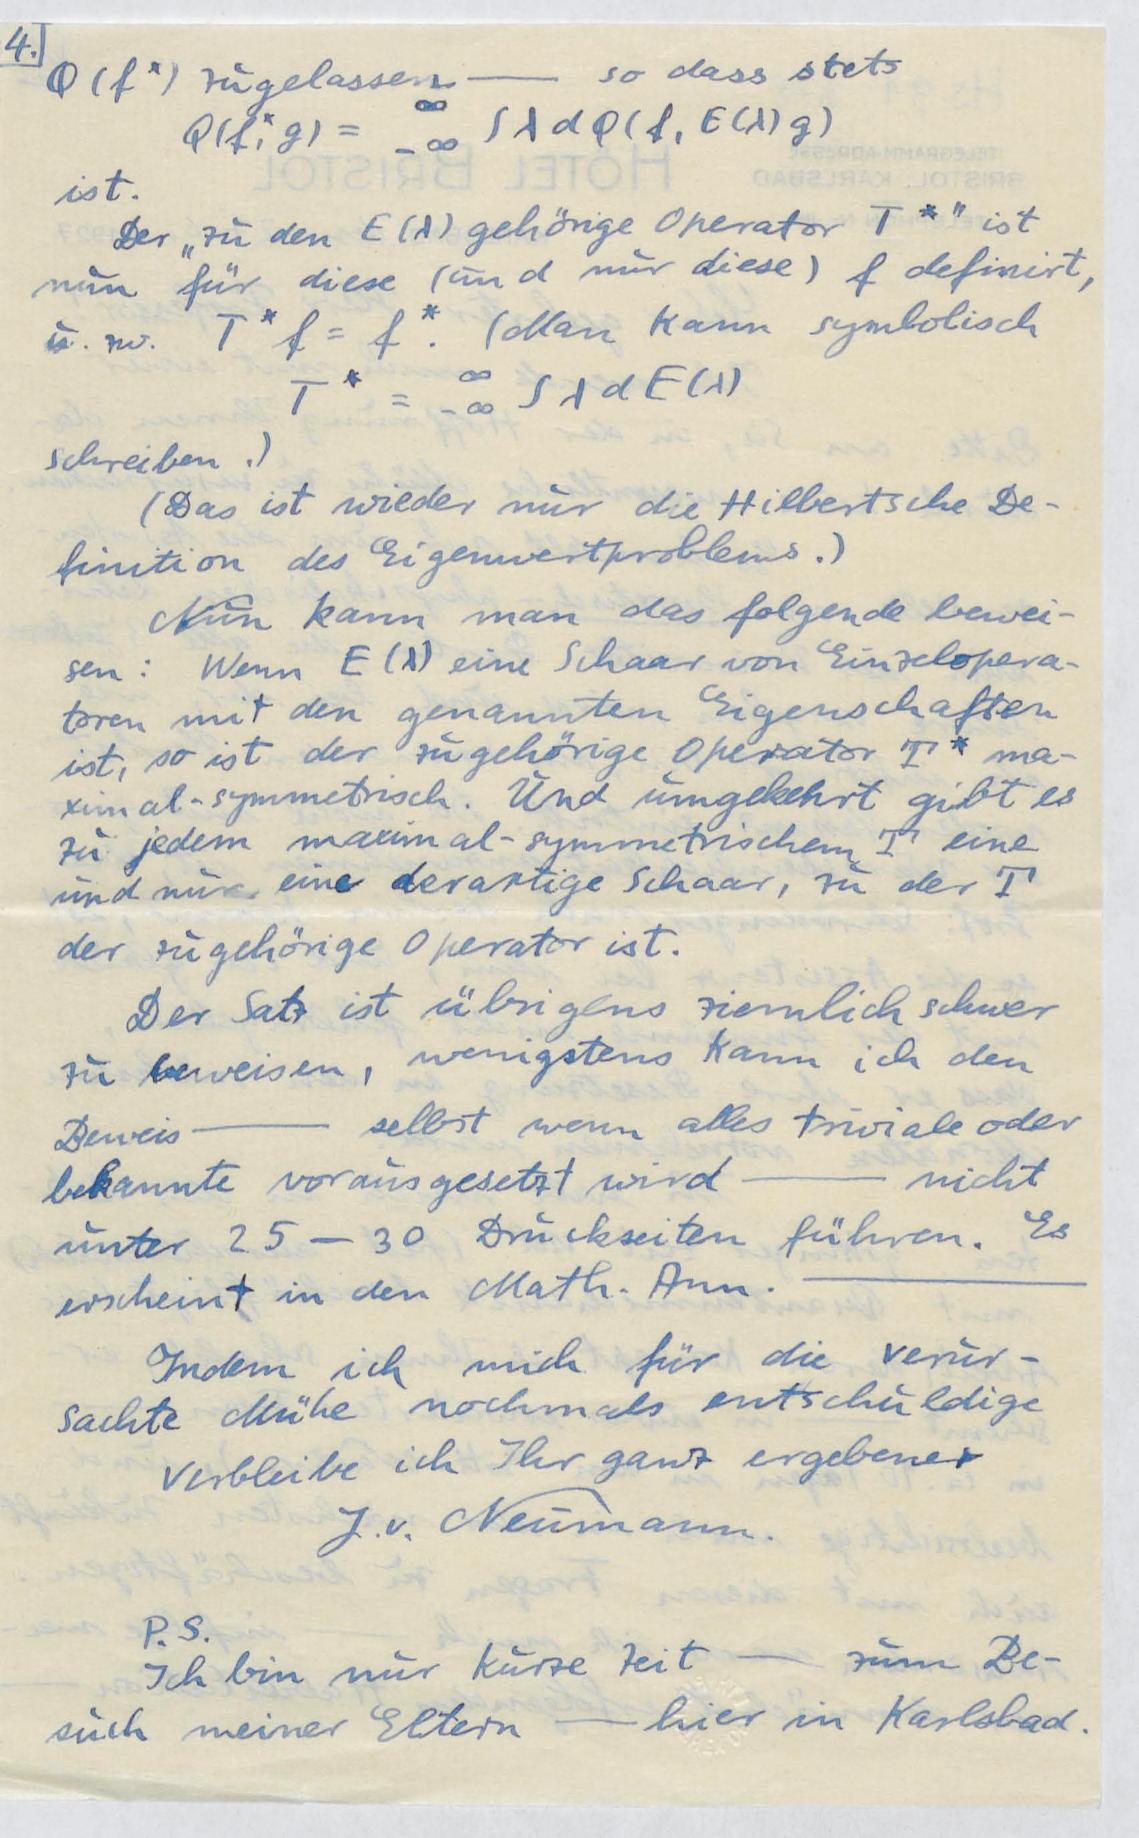 4.
Q(f*) zugelassen —— so dass stets
Q(f*, g) = ∞ -∞ ∫ λ d Q(f, E(λ)g)
ist.
Der „zu den E(λ) gehörige Operator T*" ist
nun für diese (und nur diese) f definirt,
u. zw. T*f = f*. (Man kann symbolisch
T* = ∞ -∞ ∫ λ d E(λ)
schreiben.)
(Das ist wieder nur die Hilbertsche De-
finition des Eigenwertproblems.)
Nun kann man das folgende bewei-
sen: Wenn E(λ) eine Schaar von Einzelopera-
toren mit den genannten Eigenschaften
ist, so ist der zugehörige Operator T* ma-
ximal-symmetrisch. Und umgekehrt gibt es
zu jedem maximal-symmetrischem T eine
und nur eine derartige Schaar, zu der T
der zugehörige Operator ist.
Der Satz ist übrigens ziemlich schwer
zu beweisen, wenigstens kann ich den
Beweis —— selbst wenn alles triviale oder
bekannte vorausgesetzt wird —— nicht
unter 25 – 30 Druckseiten führen. Es
erscheint in den Math. Ann. ——
Indem ich mich für die verur-
sachte Mühe nochmals entschuldige
verbleibe ich Ihr ganz ergebener
J. v. Neumann.
P.S.
Ich bin nur kurze Zeit — zum Be-
such meiner Eltern — hier in Karlsbad.
HOTEL BRISTOL
TELEGRAMM-ADRESSE
BRISTOL KARLSBAD